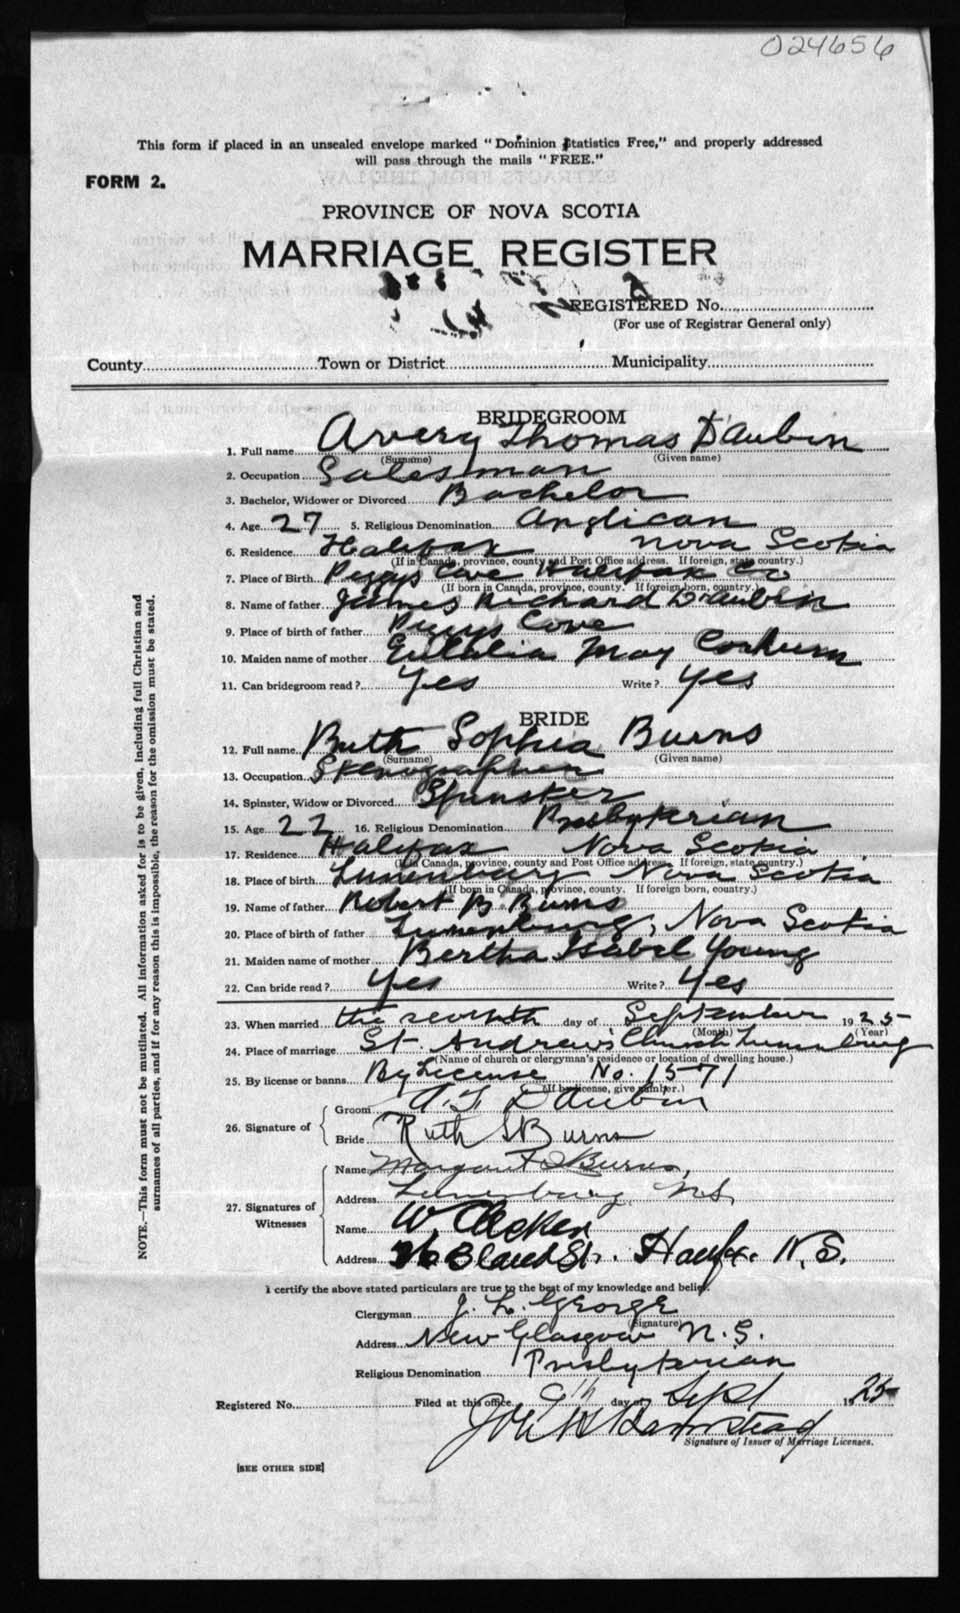 024656
This form if placed in an unsealed envelope marked "Dominion Statistics Free," and properly addressed
will pass through the mails "FREE."
FORM 2.
PROVINCE OF NOVA SCOTIA
MARRIAGE REGISTER
REGISTERED No.
(For use of Registrar General only)
County Town or District Municipality
BRIDEGROOM
1. Full name Avery Thomas D'Aubin
(Surname) (Given name)
2. Occupation Salesman
3. Bachelor, Widower or Divorced Bachelor
4. Age 27 5. Religious Denomination Anglican
6. Residence Halifax Nova Scotia
(If in Canada, province, county and Post Office address. If foreign, state country.)
7. Place of Birth Peggys Cove Halifax Co
(If born in Canada, province, county. If foreign born, country.)
8. Name of father James Richard D'Aubin
9. Place of birth of father Peggys Cove
10. Maiden name of mother Eulalia May
11. Can bridegroom read? Yes Write? Yes
BRIDE
12. Full name Ruth Sophia Burns
(Surname) (Given name)
13. Occupation Stenographer
14. Spinster, Widow or Divorced Spinster
15. Age 22 16. Religious Denomination Presbyterian
17. Residence Halifax Nova Scotia
(If in Canada, province, county and Post Office address. If foreign, state country.)
18. Place of birth Lunenburg Nova Scotia
(If born in Canada, province, county. If foreign born, country.)
19. Name of father Robert B. Burns
20. Place of birth of father Lunenburg, Nova Scotia
21. Maiden name of mother Bertha Isabel Young
22. Can bride read? Yes Write? Yes
23. When married the seventh day of September 1925
(Month) (Year)
24. Place of marriage St. Andrew's Church Lunenburg
(Name of church or clergyman's residence or location of dwelling house.)
25. By license or banns By License No. 1571
(If by license, give number.)
26. Signature of
Groom A. T. D'Aubin
Bride Ruth S Burns
27. Signatures of Witnesses
Name Margaret Burns,
Address Lunenburg N.S.
Name W.
Address 36 Bland St. Halifx. N.S.
I certify the above stated particulars are true to the best of my knowledge and belief.
Clergyman J. L. George
(Signature)
Address New Glasgow N.S.
Religious Denomination Presbyterian
Registered No. Filed at this office 9th day of Sept 1925
Signature of Issuer of Marriage Licenses.
[SEE OTHER SIDE]
NOTE.—This form must not be mutilated. All information asked for is to be given, including full Christian and
surnames of all parties, and if for any reason this is impossible, the reason for the omission must be stated.